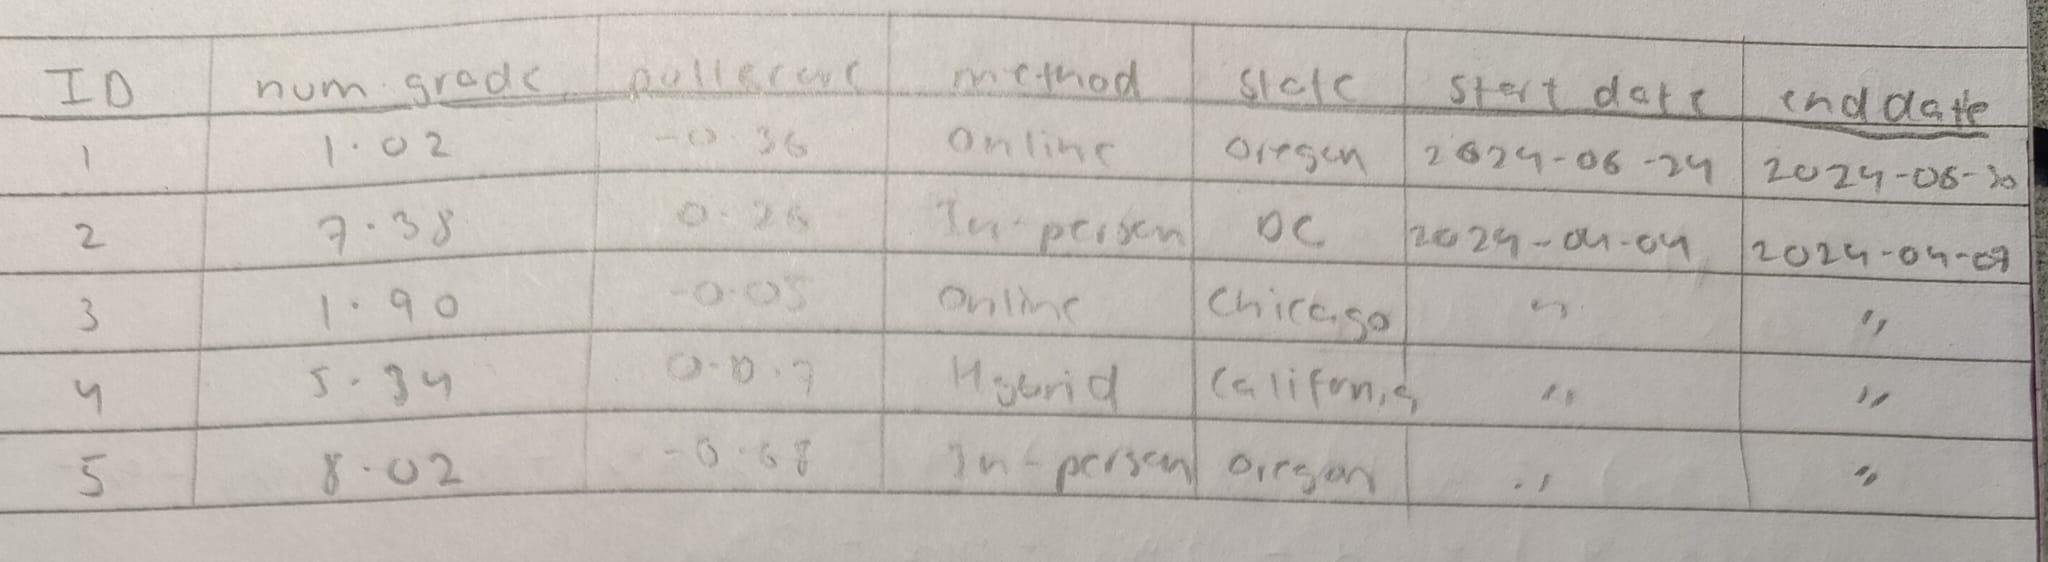 ID num. grade pollscore method state start date end date
1 1.02 -0.36 Online Oregon 2024-06-24 2024-06-30
2 7.38 0.26 In-person DC 2024-04-04 2024-04-07
3 1.90 -0.05 Online Chicago " "
4 5.34 0.0.7 Hybrid California " "
5 8.02 -0.68 In-person Oregon " "